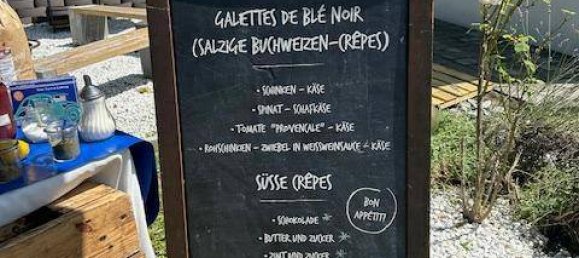 GALETTES DE BLÉ NOIR
(SALZIGE BUCHWEIZEN-CRÊPES)
• SCHINKEN - KÄSE
• SPINAT - SCHAFKÄSE
• TOMATE "PROVENCALE" - KÄSE
• ROHSCHINKEN - ZWIEBEL IN WEISSWEINSAUCE - KÄSE
SÜSSE CRÊPES
• SCHOKOLADE *
• BUTTER UND ZUCKER *
• ZIMT UND ZUCKER *
BON
APPÉTIT!